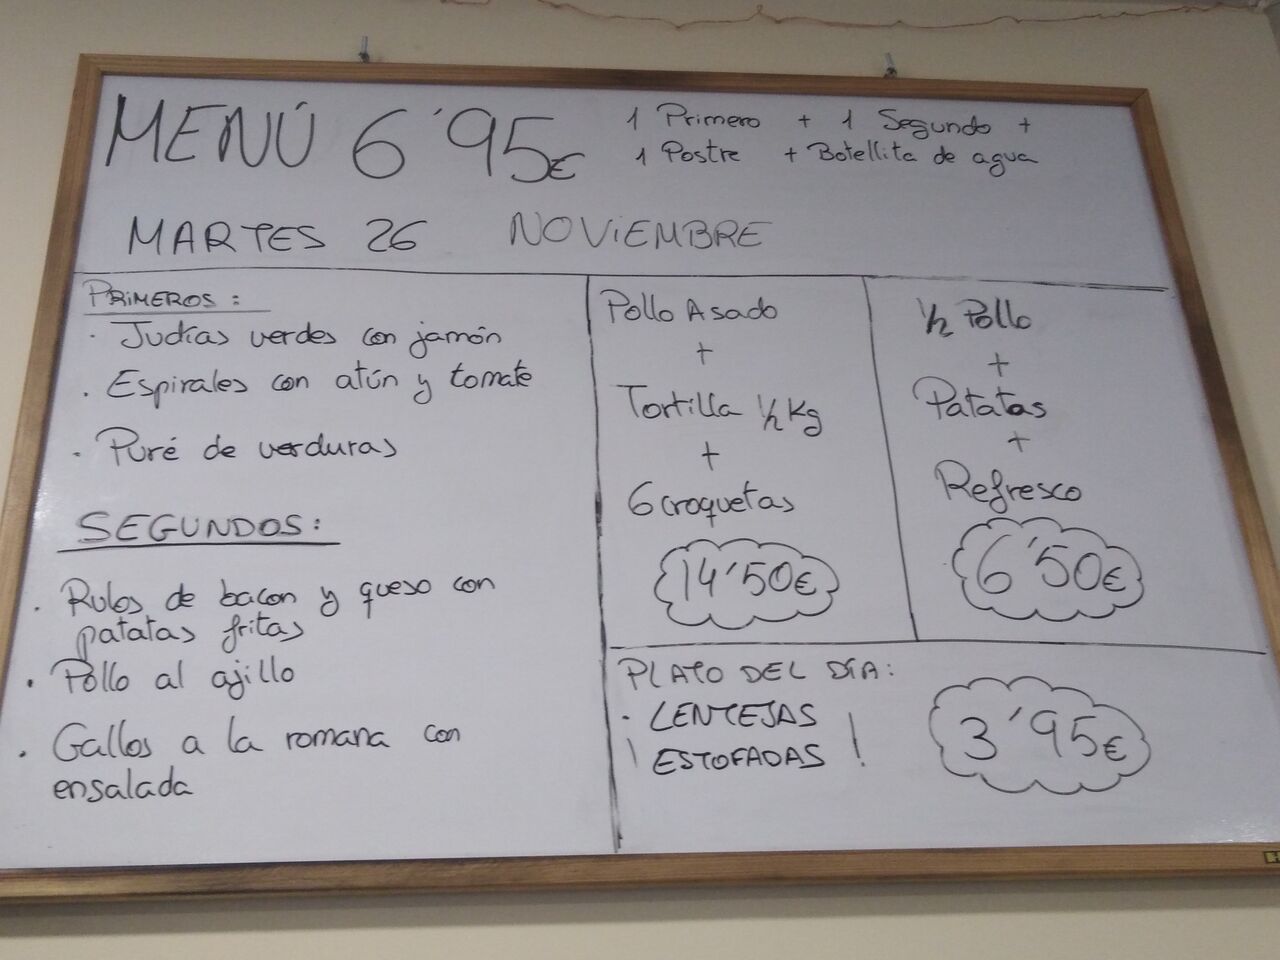 MENÚ 6'95€
1 Primero + 1 Segundo +
1 Postre + Botellita de agua
MARTES 26 NOVIEMBRE
PRIMEROS:
· Judías verdes con jamón
· Espirales con atún y tomate
· Puré de verduras
SEGUNDOS:
· Rulos de bacon y queso con
patatas fritas
· Pollo al ajillo
· Gallos a la romana con
ensalada
Pollo Asado
+
Tortilla 1/2 Kg
+
6 croquetas
14'50€
1/2 Pollo
+
Patatas
+
Refresco
6'50€
PLATO DEL DÍA:
· LENTEJAS
¡ESTOFADAS!
3'95€